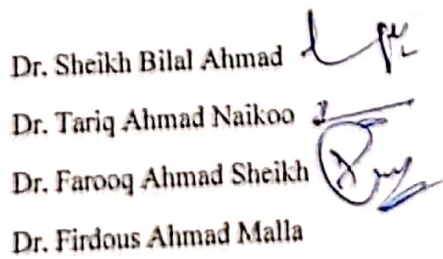 Dr. Sheikh Bilal Ahmad
Dr. Tariq Ahmad Naikoo
Dr. Farooq Ahmad Sheikh
Dr. Firdous Ahmad Malla